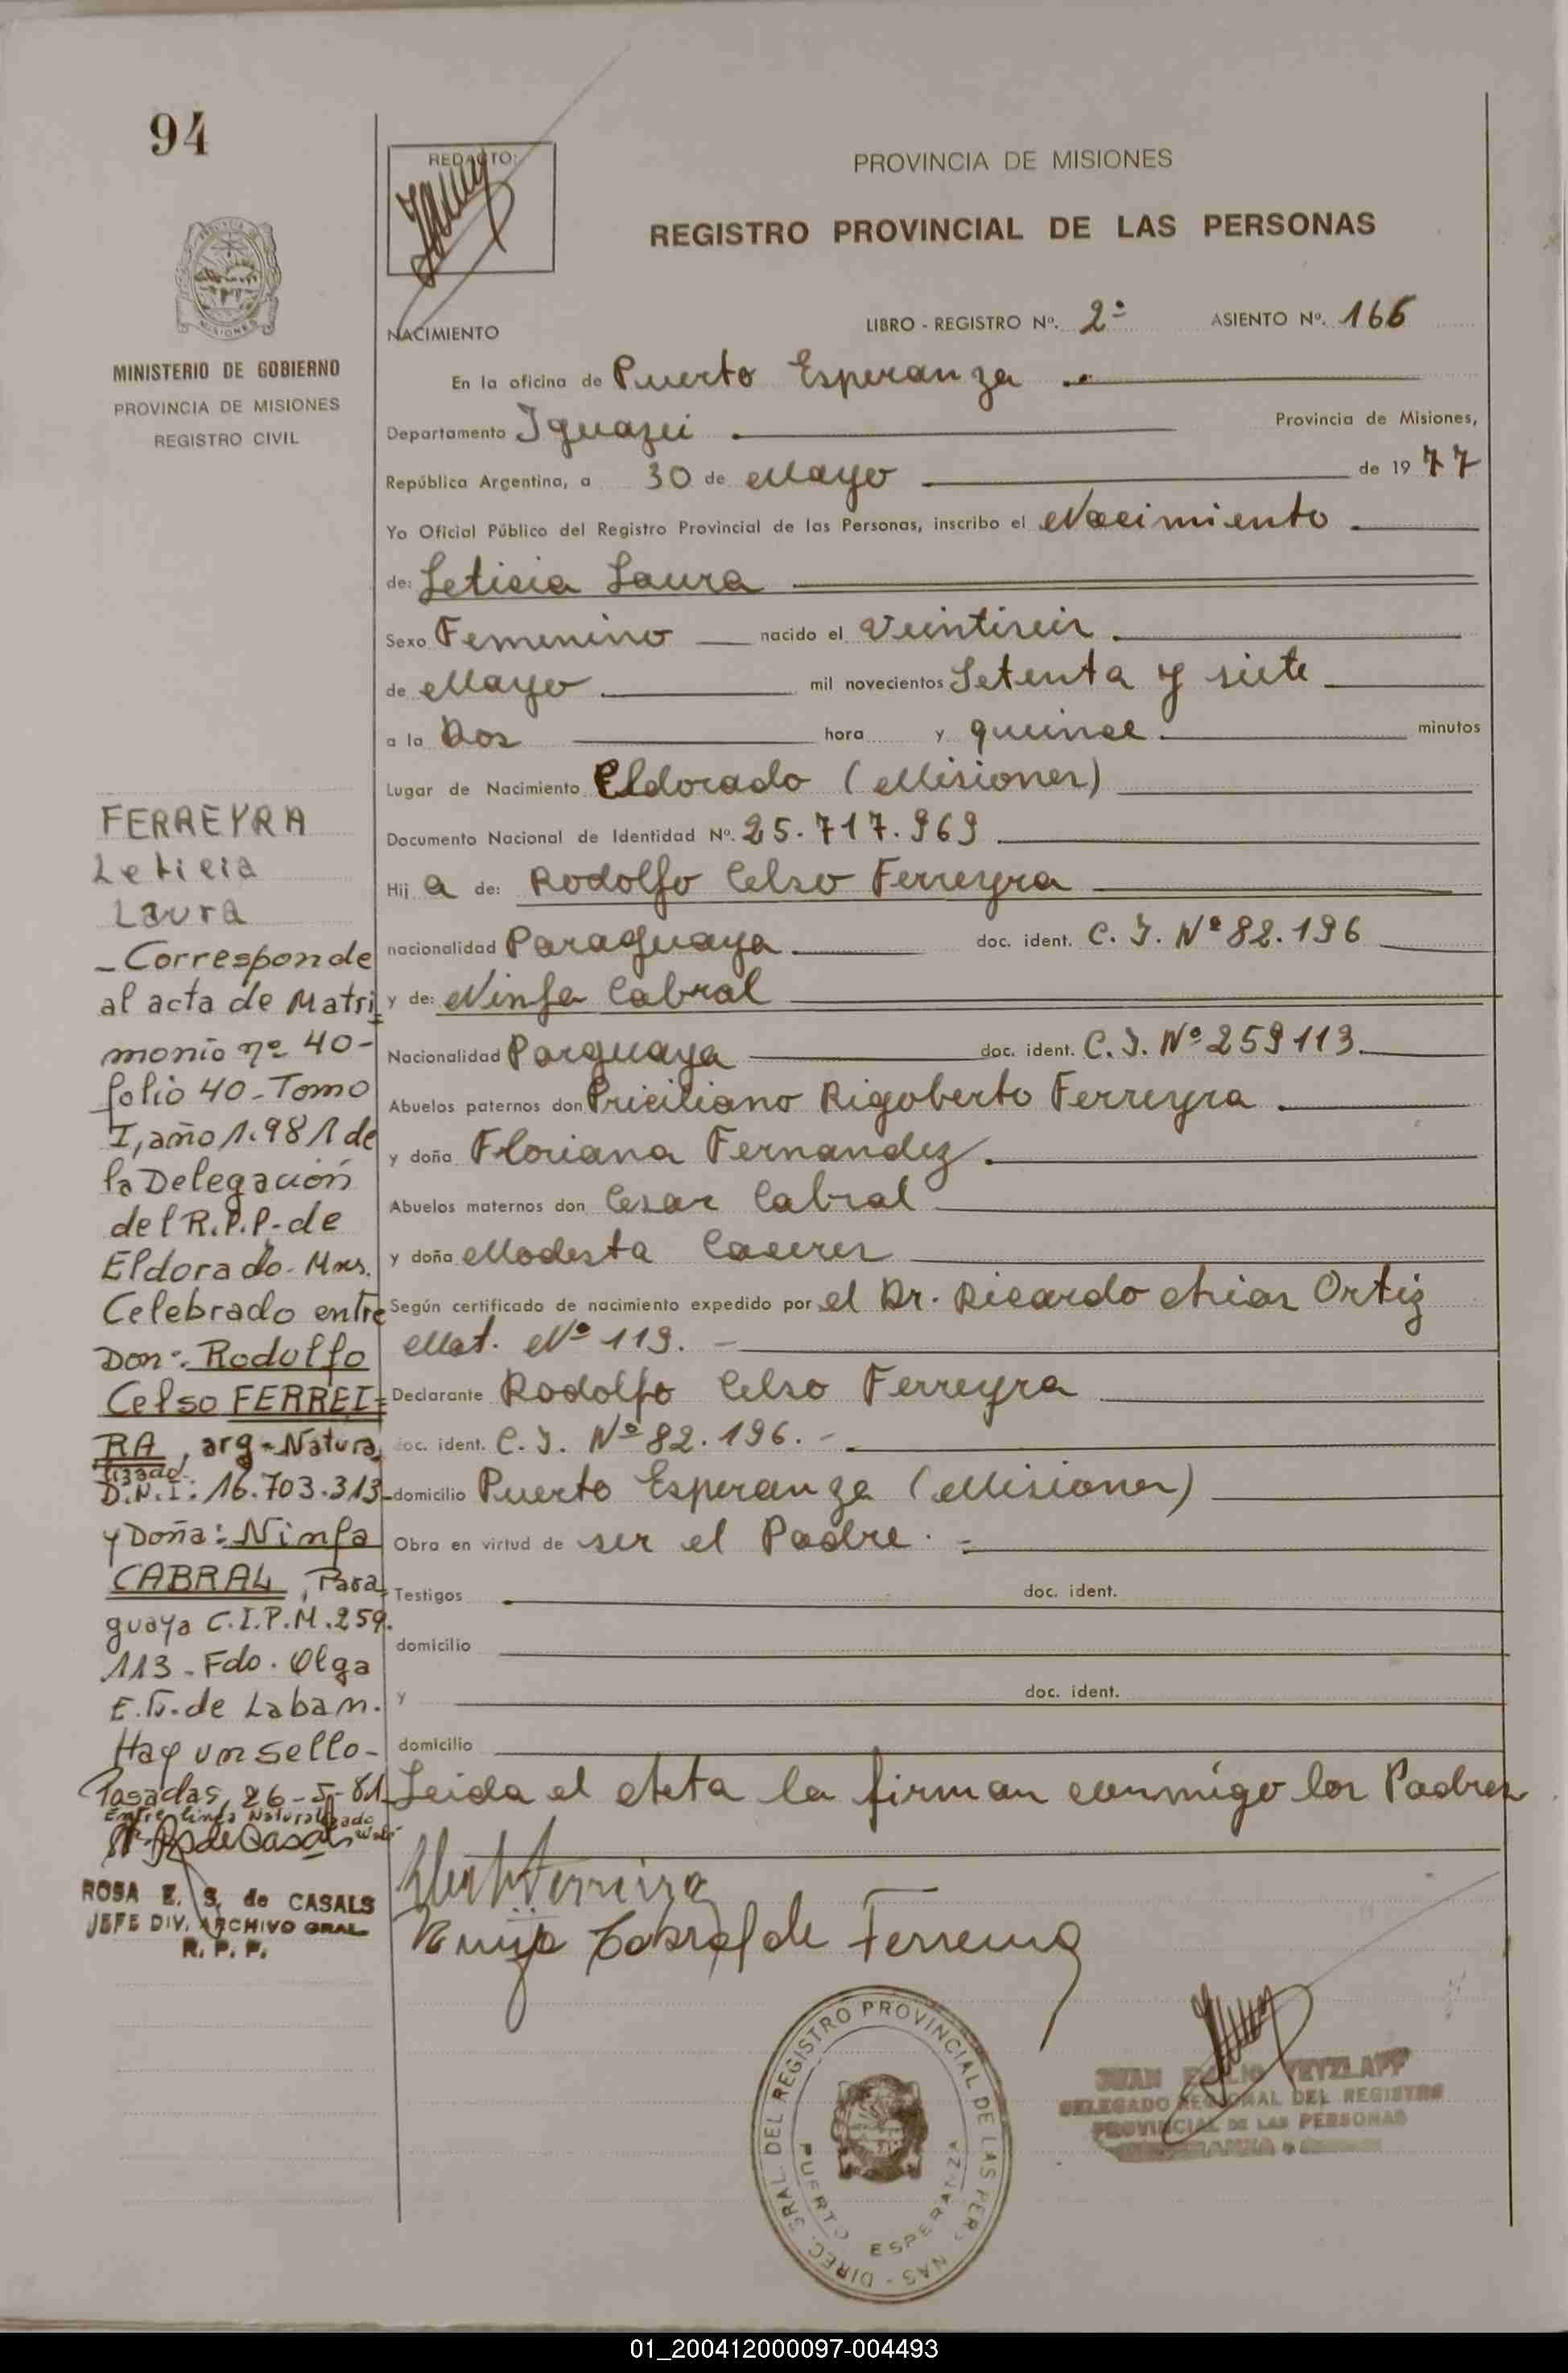 94
REDACTO:
PROVINCIA DE MISIONES
REGISTRO PROVINCIAL DE LAS PERSONAS
MISIONES
MINISTERIO DE GOBIERNO
PROVINCIA DE MISIONES
REGISTRO CIVIL
NACIMIENTO
LIBRO - REGISTRO Nº. 2º ASIENTO Nº. 166
En la oficina de Puerto Esperanza
Departamento Iguazú Provincia de Misiones,
República Argentina, a 30 de Mayo de 1977
Yo Oficial Público del Registro Provincial de las Personas, inscribo el Nacimiento
de: Leticia Laura
Sexo Femenino nacido el Veintiseis
de Mayo mil novecientos Setenta y siete
a la Dos hora y quince minutos
Lugar de Nacimiento Eldorado (Misiones)
Documento Nacional de Identidad Nº. 25.717.969
Hij a de: Rodolfo Celso Ferreyra
nacionalidad Paraguaya doc. ident. C. I. Nº 82.196
y de: Ninfa Cabral
Nacionalidad Parguaya doc. ident. C. I. Nº 259113
Abuelos paternos don Priciliano Rigoberto Ferreyra
y doña Floriana Fernandez
Abuelos maternos don Cesar Cabral
y doña Modesta Caceres
Según certificado de nacimiento expedido por el Dr. Ricardo Arias Ortiz
Mat. Nº 119. -
Declarante Rodolfo Celso Ferreyra
doc. ident. C. I. Nº 82.196. -
domicilio Puerto Esperanza (Misiones)
Obra en virtud de ser el Padre. =
Testigos doc. ident.
domicilio
y doc. ident.
domicilio
Leida el Acta la firman conmigo los Padres
FERREYRA
Leticia
Laura
- Corresponde
al acta de Matri
monio nº 40-
folio 40 - Tomo
I, año 1.981 de
la Delegación
del R.P.P. de
Eldorado - Mnes.
Celebrado entre
Don: Rodolfo
Celso FERREI=
RA, arg - Natura
lizado
D.N.I: 16.703.313
y Doña: Ninfa
CABRAL, Para=
guaya C.I.P.M. 259.
113 - Fdo. Olga
E. de Laban.
Hay un sello-
Posadas, 26-5-81
Entre linea Naturalizado
Vale
ROSA E. S. de CASALS
JEFE DIV. ARCHIVO GRAL
R. P. P.
Ninfa Cabral de Ferreira
DIREC. GRAL. DEL REGISTRO PROVINCIAL DE LAS PERSONAS -
PUERTO ESPERANZA
JUAN YETZLAFF
DELEGADO REGIONAL DEL REGISTRO
PROVINCIAL DE LAS PERSONAS
01_200412000097-004493